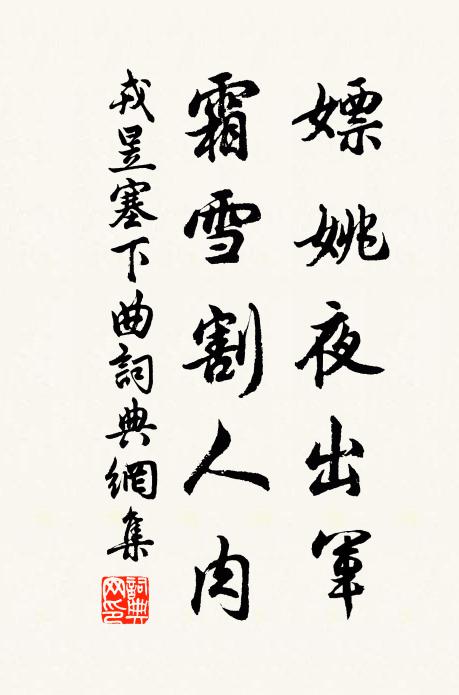 嫖姚夜出軍
霜雪割人肉
戎昱塞下曲詞典網集
詞典網印